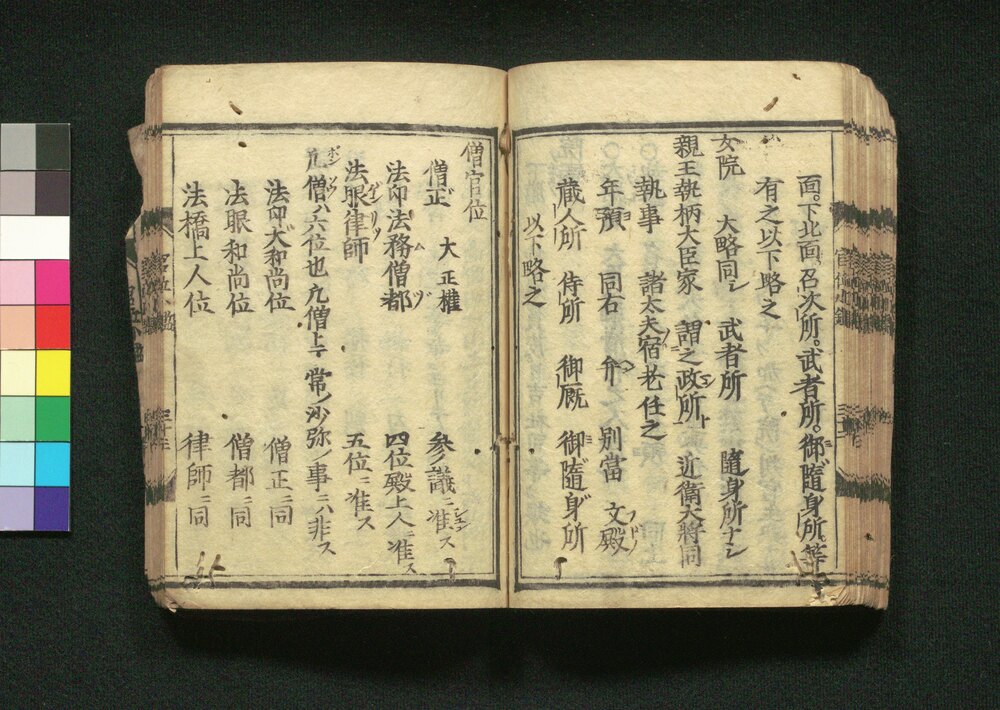 面。下北面。召次所。武者所。御隨身所。等
有之以下略之
女院　大略同シ　武者所　隨身所ナシ
親王執柄大臣家　謂之政所ト　近衛大將同
執事　諸太夫宿老任之
年預　同右　弁　別當　文殿
蔵人所　侍所　御厩　御隨身所
以下略之
僧官位
僧正　大正權　參議ニ准ス
法印法務僧都　四位殿上人ニ准ス
法眼律師　五位ニ准ス
凡僧ハ六位也凡僧ト云テ常ノ沙弥ノ事ニハ非ス
法印大和尚位　僧正ニ同
法眼和尚位　僧都ニ同
法橋上人位　律師ニ同